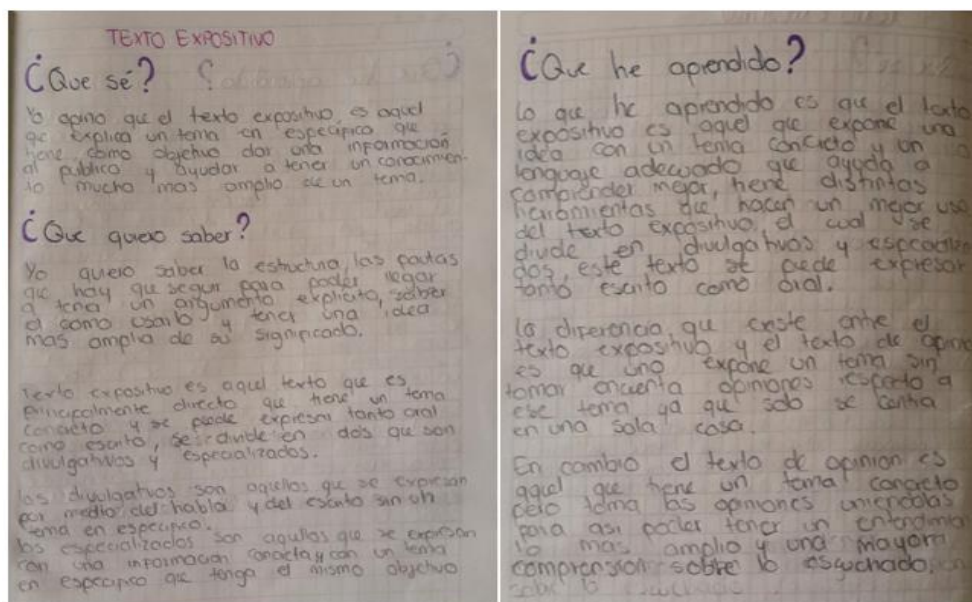 TEXTO EXPOSITIVO
¿Que sé?
Yo opino que el texto expositivo, es aquel
que explica un tema en especifico, que
tiene como objetivo dar una informacion
al publico y ayudar a tener un conocimien-
to mucho mas amplio de un tema.
¿Que quiero saber?
Yo quiero saber la estructura, las pautas
que hay que seguir para poder llegar
a tener un argumento explicito, saber
el como usarlo y tener una idea
mas amplia de su significado.
Texto expositivo es aquel texto que es
principalmente directo que tiene un tema
concreto y se puede expresar tanto oral
como escrito, se divide en dos que son
divulgativos y especializados.
los divulgativos son aquellos que se expresan
por medio del habla y del escrito sin un
tema en especifico.
los especializados son aquellos que se expresan
con una informacion concreta y con un tema
en especifico que tenga el mismo objetivo
¿Que he aprendido?
Lo que he aprendido es que el texto
expositivo es aquel que expone una
idea con un tema concreto y un
lenguaje adecuado que ayuda a
comprender mejor, tiene distintas
herramientas que hacen un mejor uso
del texto expositivo, el cual se
divide en divulgativos y especializa
dos, este texto se puede expresar
tanto escrito como oral.
la diferencia que existe entre el
texto expositivo y el texto de opini
es que uno expone un tema sin
tomar encuenta opiniones respecto a
ese tema ya que solo se centra
en una sola cosa.
En cambio el texto de opinion es
aquel que tiene un tema concreto
pero toma las opiniones uniendolas
para asi poder tener un entendimie
to mas amplio y una mayor
comprension sobre lo escuchado.